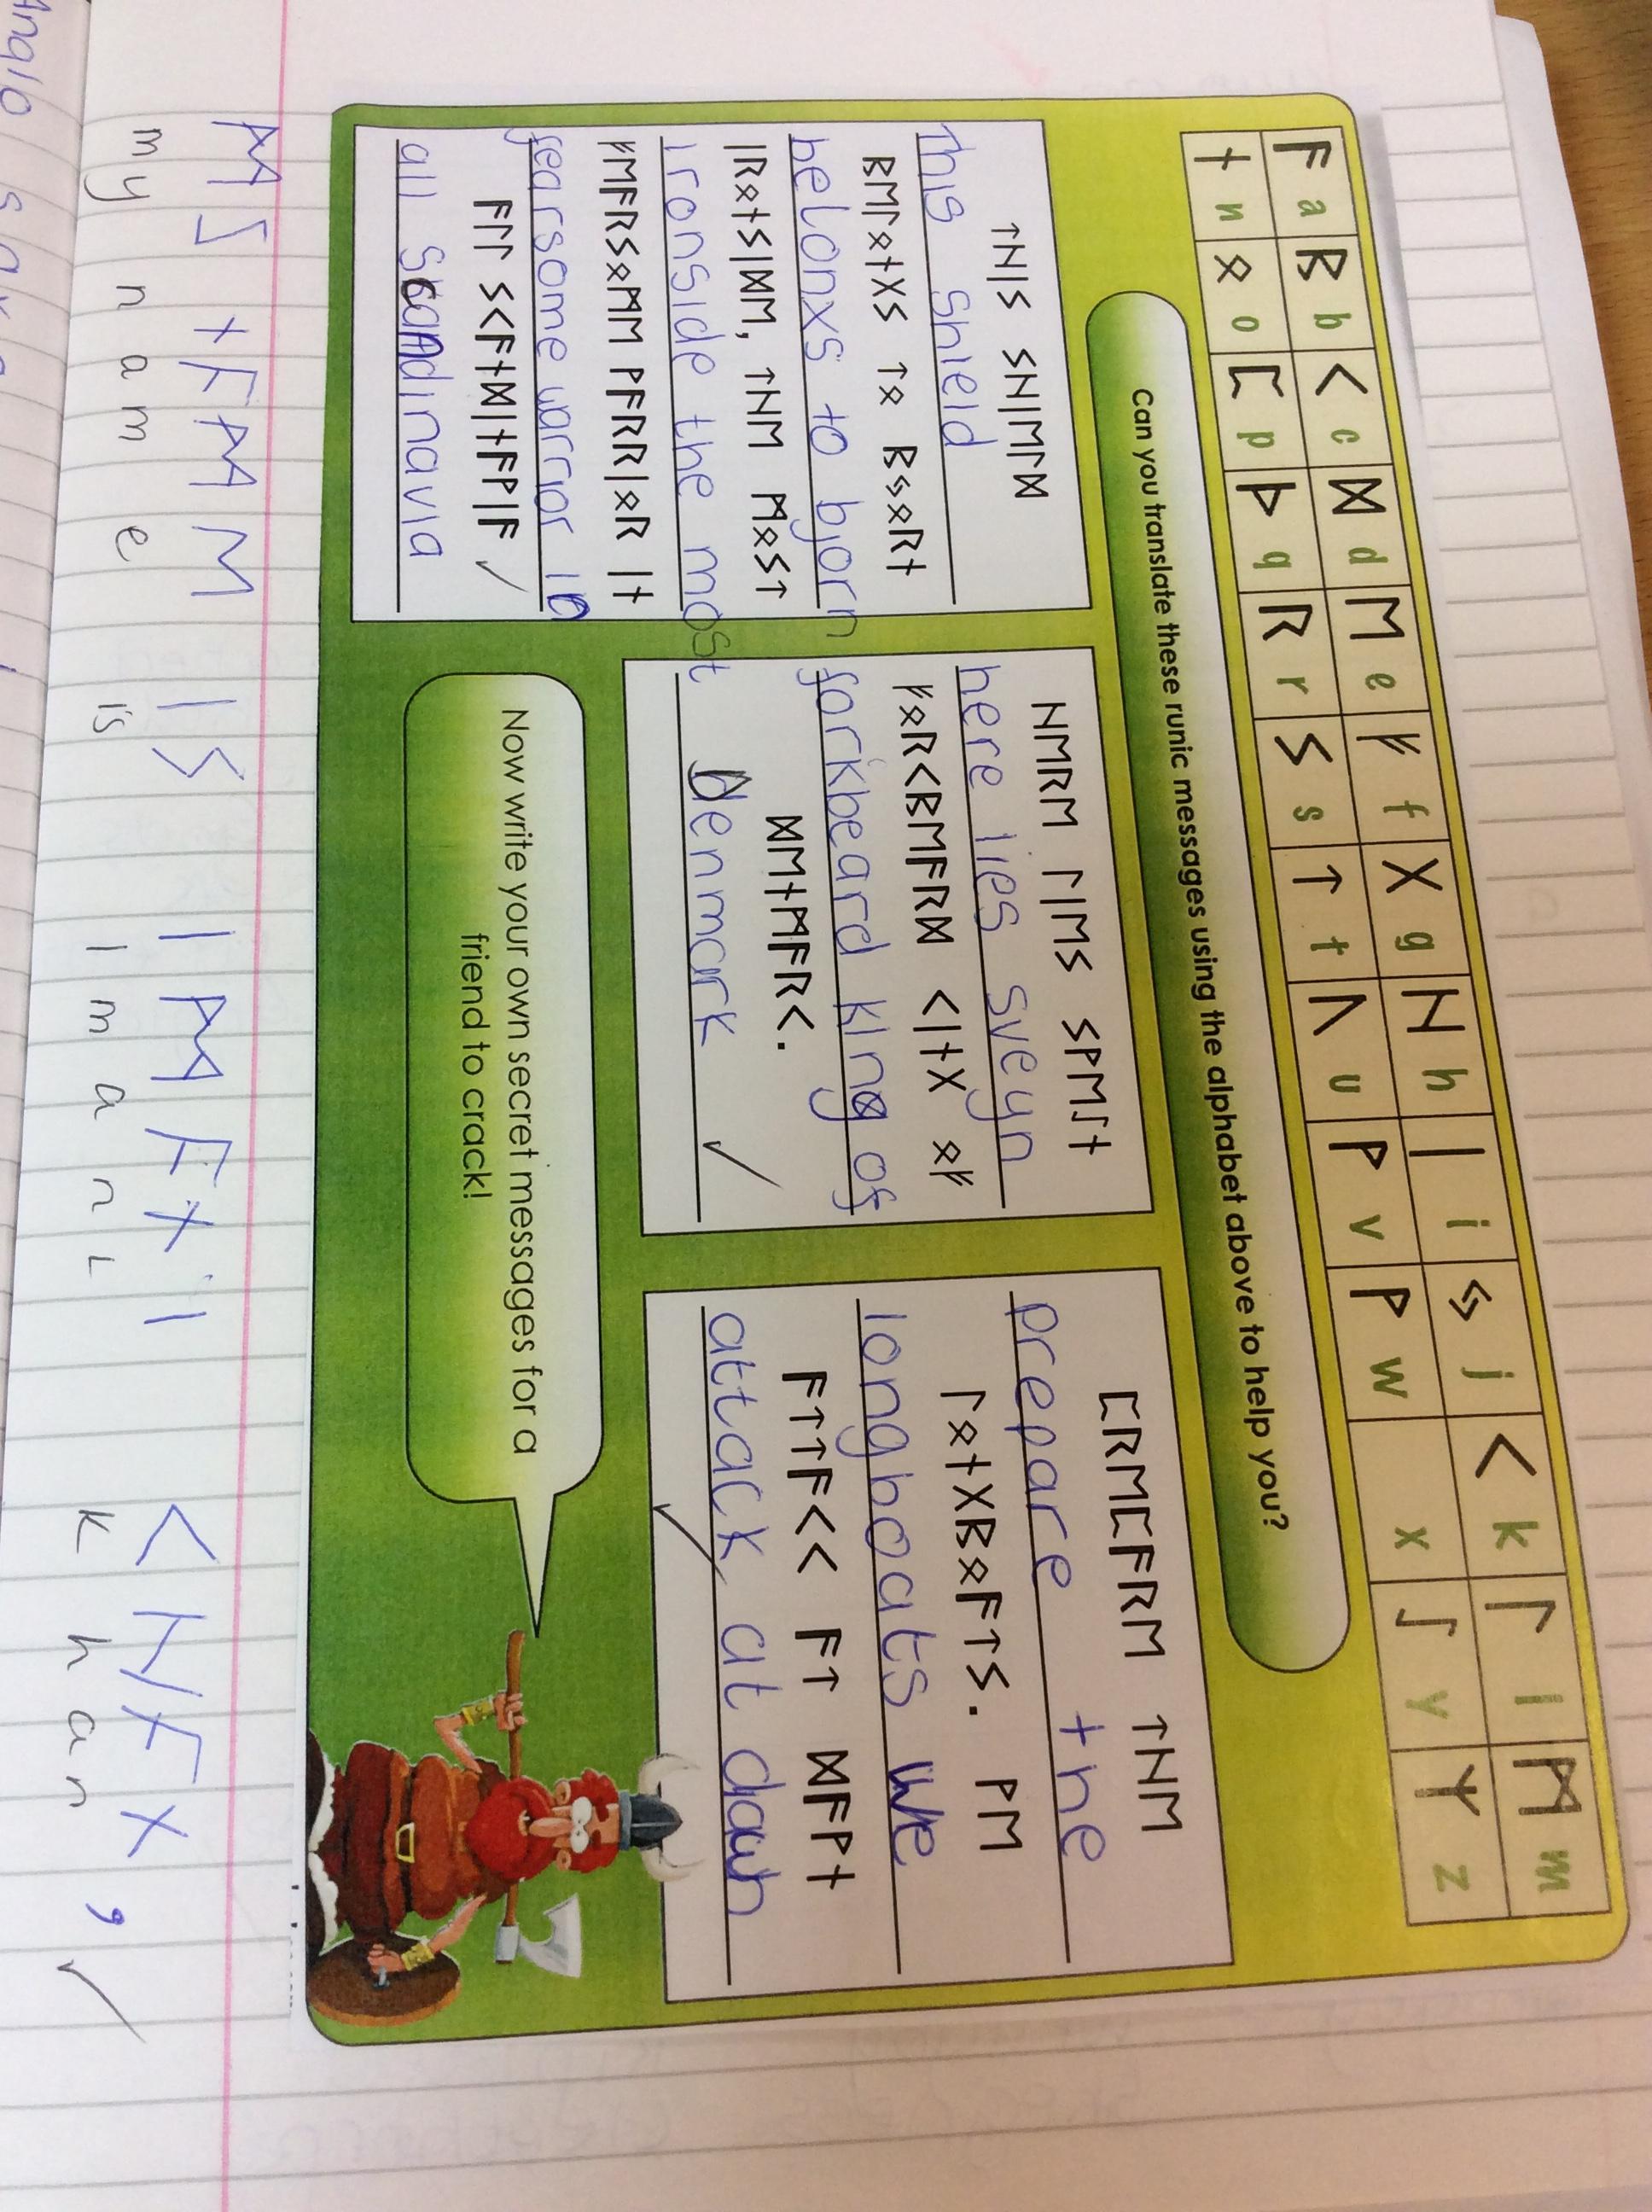 ᚨ a ᚱ b ᚲ c ᛞ d ᛖ e ᚠ f ᚷ g ᚺ h ᛁ i ᛃ j ᚲ k ᛚ l ᛗ m
ᚾ n ᛟ o ᛈ p ᚦ q ᚱ r ᛊ s ᛏ t ᚢ u ᚹ v ᚹ w x ᛇ y ᛉ z
Can you translate these runic messages using the alphabet above to help you?
ᛏᚺᛁᛊ ᛊᚺᛁᛖᛚᛞ
This Shield
ᛒᛖᛚᛟᚾᚷᛊ ᛏᛟ ᛒᛃᛟᚱᚾ
belonxs to bjorn
ᛁᚱᛟᚾᛊᛁᛞᛖ, ᛏᚺᛖ ᛗᛟᛊᛏ
ironside the most
ᚠᛖᚨᚱᛊᛟᛗᛖ ᚹᚨᚱᚱᛁᛟᚱ ᛁᚾ
fearsome warrior in
ᚨᛚᛚ ᛊᚲᚨᚾᛞᛁᚾᚨᚹᛁᚨ
all Scandinavia
ᚺᛖᚱᛖ ᛚᛁᛖᛊ ᛊᚹᛖᛇᚾ
here lies sveyn
ᚠᛟᚱᚲᛒᛖᚨᚱᛞ ᚲᛁᚾᚷ ᛟᚠ
forkbeard king of
ᛞᛖᚾᛗᚨᚱᚲ.
Denmark
ᛈᚱᛖᛈᚨᚱᛖ ᛏᚺᛖ
prepare the
ᛚᛟᚾᚷᛒᛟᚨᛏᛊ. ᚹᛖ
longboats we
ᚨᛏᛏᚨᚲᚲ ᚨᛏ ᛞᚨᚹᚾ
attack at dawn
Now write your own secret messages for a
friend to crack!
ᛗᛇ ᚾᚨᛗᛖ ᛁᛊ ᛁᛗᚨᚾᛁ ᚲᚺᚨᚾ,
my name is Imani khan